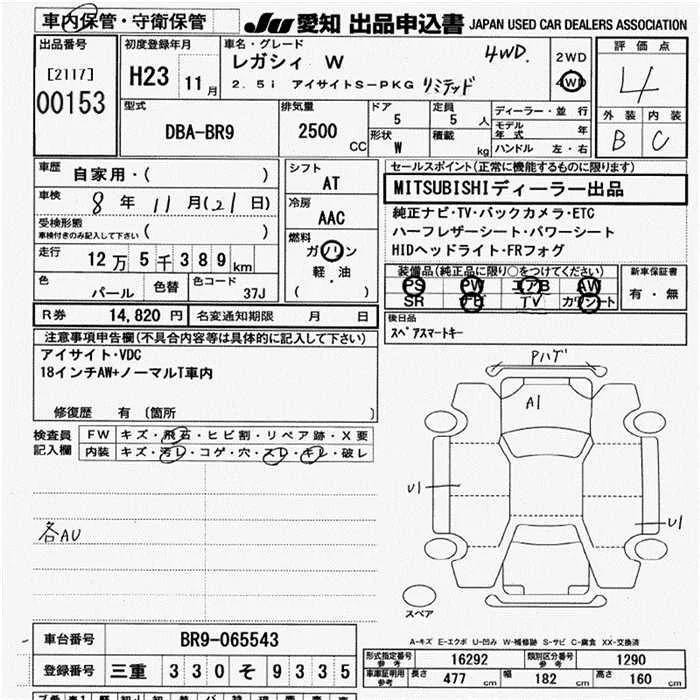 車内保管・守衛保管 JU 愛知 出品申込書 JAPAN USED CAR DEALERS ASSOCIATION
出品番号
[2117]
00153
初度登録年月
H23 11月
車名・グレード
レガシィ W 4WD.
2.5i アイサイトS-PKG リミテッド
2WD
4WD
評価点
4
外装 内装
B C
型式
DBA-BR9
排気量
2500 CC
ドア 5
定員 5 人
形状 W
積載 kg
ディーラー・並行
モデル年式 年
ハンドル 左・右
車歴
自家用・( )
車検
8 年 11 月(21 日)
受検形態
車検付きのみ記入して下さい ( )
走行
12万5千389km
色 パール
色替
色コード 37J
シフト
AT
冷房
AAC
燃料
ガソリン
軽・油
( )
セールスポイント(正常に機能するものに限ります)
MITSUBISHIディーラー出品
純正ナビ・TV・バックカメラ・ETC
ハーフレザーシート・パワーシート
HIDヘッドライト・FRフォグ
装備品(純正品に限り○をつけてください)
PS PW エアB AW
SR ナビ TV カワシート
新車保証書
有・無
後日品
スペアスマートキー
R券 14,820 円 名変通知期限 月 日
注意事項申告欄(不具合内容等は具体的に記入して下さい)
アイサイト・VDC
18インチAW+ノーマルT車内
修復歴 有 〔箇所 〕
検査員記入欄
FW キズ・飛石・ヒビ割・リペア跡・X要
内装 キズ・汚レ・コゲ・穴・スレ・キレ・破レ
各AU
Pハゲ
A1
U1
U1
スペア
A-キズ E-エクボ U-凹み W-補修跡 S-サビ C-腐食 XX-交換済
車台番号 BR9-065543
登録番号 三重 330 そ 9335
型式指定番号 参考 16292
類別区分番号 参考 1290
車庫証明用 参考 長さ 477 cm 幅 182 cm 高さ 160 cm